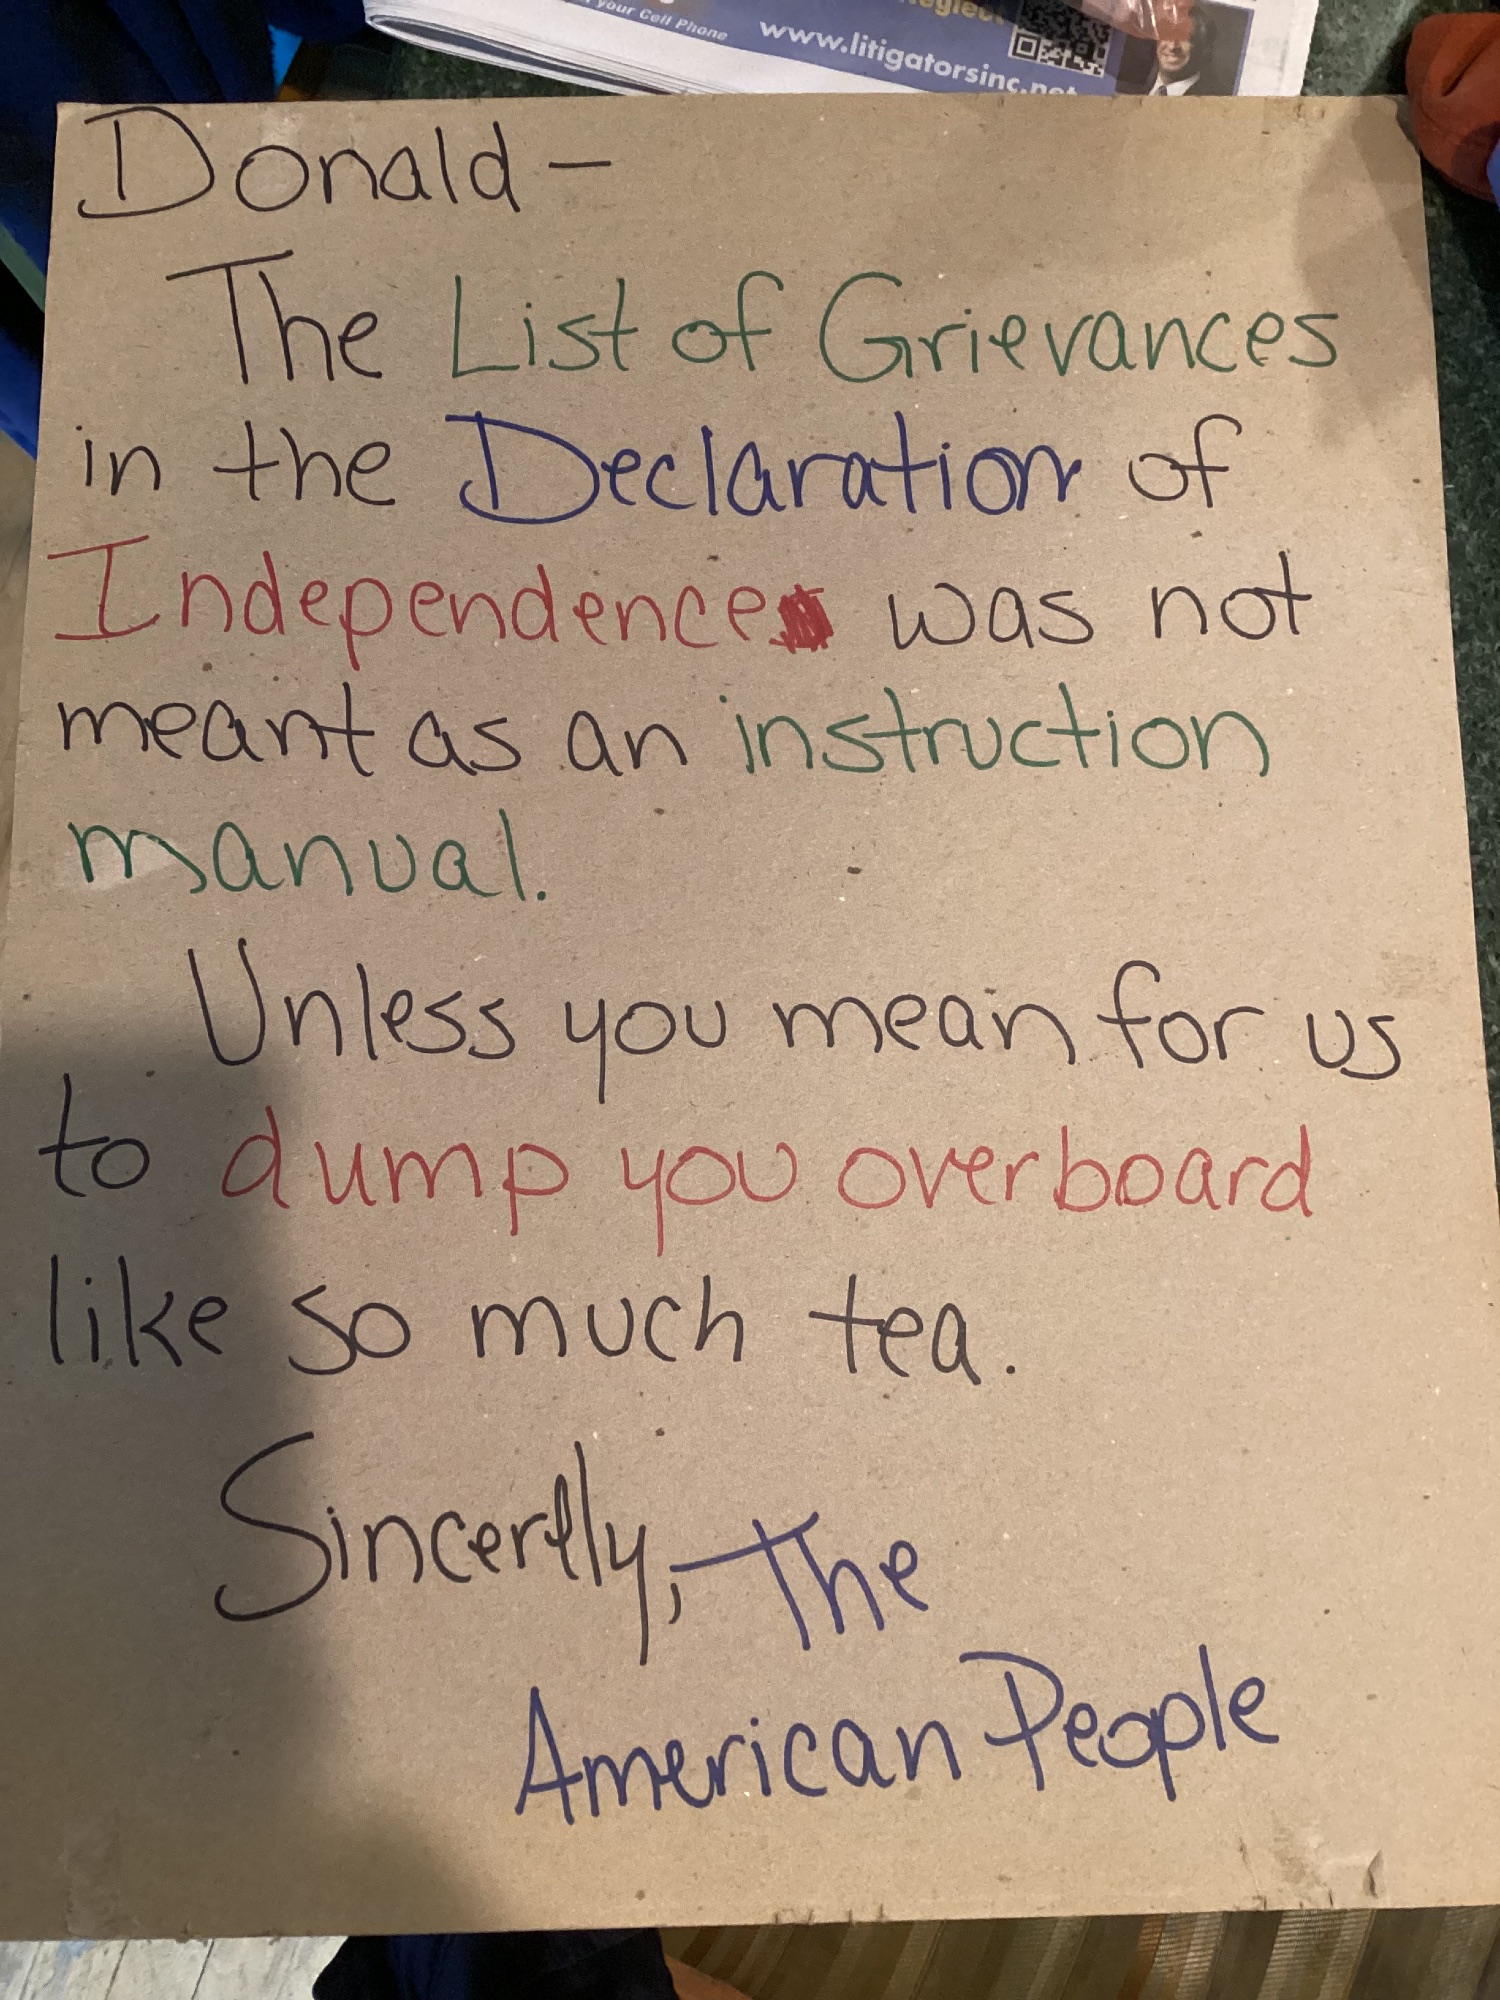 your Cell Phone
www.litigatorsinc.net
Donald —
The List of Grievances
in the Declaration of
Independence was not
meant as an instruction
manual.
Unless you mean for us
to dump you overboard
like so much tea.
Sincerely, The
American People